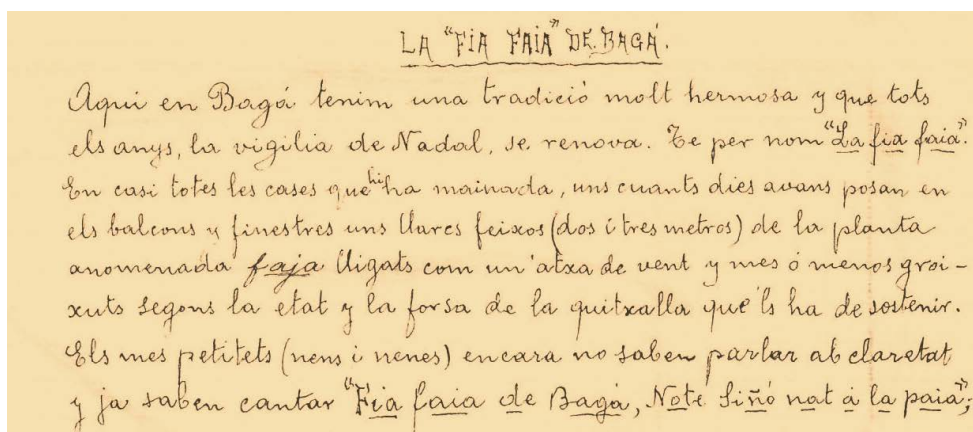 LA "FIA FAIA" DE BAGÁ.
Aqui en Bagá tenim una tradició molt hermosa y que tots
els anys, la vigilia de Nadal, se renova. Te per nom "La fia faia".
En casi totes les cases que hi ha mainada, uns cuants dies avans posan en
els balcons y finestres uns llarcs feixos (dos i tres metros) de la planta
anomenada faja lligats com un'atxa de vent y mes ó menos groi-
xuts segons la etat y la forsa de la quitxalla que'ls ha de sostenir.
Els mes petitets (nens i nenes) encara no saben parlar ab claretat
y ja saben cantar "Fia faia de Bagá, Note Siñó nat á la paia";